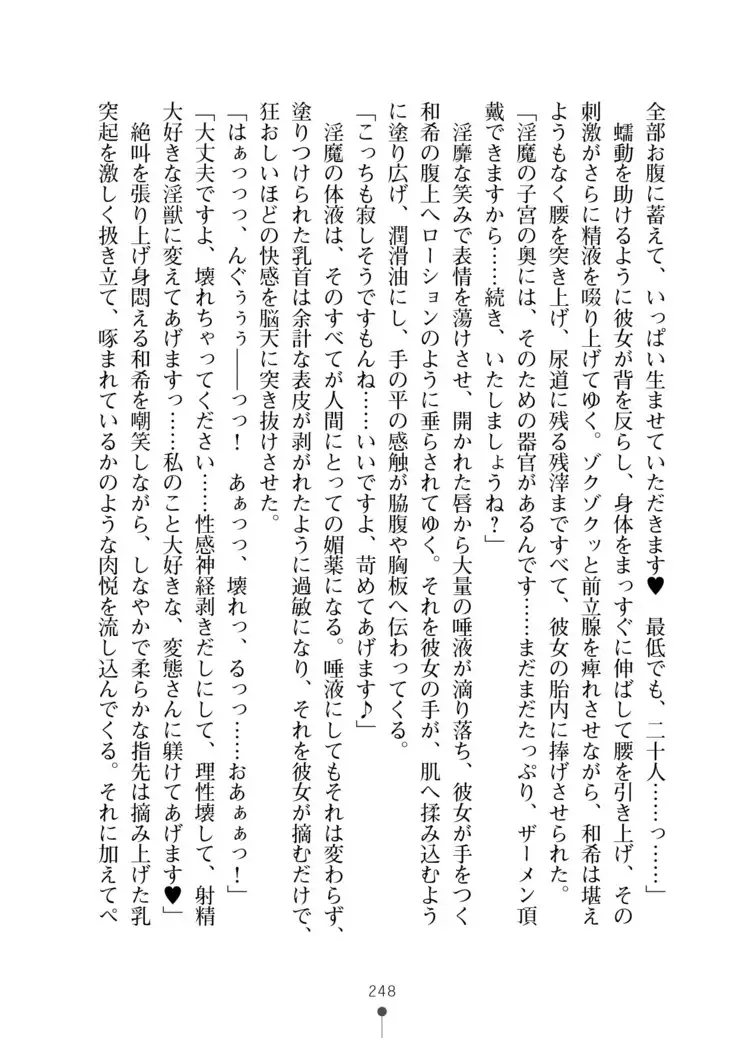 全部お腹に蓄えて、いっぱい生ませていただきます♥　最低でも、二十人……っ……」
　蠕動を助けるように彼女が背を反らし、身体をまっすぐに伸ばして腰を引き上げ、その
刺激がさらに精液を啜り上げてゆく。ゾクゾクッと前立腺を痺れさせながら、和希は堪え
ようもなく腰を突き上げ、尿道に残る残滓まですべて、彼女の胎内に捧げさせられた。
「淫魔の子宮の奥には、そのための器官があるんです……まだまだたっぷり、ザーメン頂
戴できますから……続き、いたしましょうね？」
　淫靡な笑みで表情を蕩けさせ、開かれた唇から大量の唾液が滴り落ち、彼女が手をつく
和希の腹上へローションのように垂らされてゆく。それを彼女の手が、肌へ揉み込むよう
に塗り広げ、潤滑油にし、手の平の感触が脇腹や胸板へ伝わってくる。
「こっちも寂しそうですもんね……いいですよ、苛めてあげます♪」
　淫魔の体液は、そのすべてが人間にとっての媚薬になる。唾液にしてもそれは変わらず、
塗りつけられた乳首は余計な表皮が剥がれたように過敏になり、それを彼女が摘むだけで、
狂おしいほどの快感を脳天に突き抜けさせた。
「はぁっっっ、んぐぅぅぅ――っっ！　あぁっっ、壊れっ、るっっ……おあぁぁっ！」
「大丈夫ですよ、壊れちゃってください……性感神経剥きだしにして、理性壊して、射精
大好きな淫獣に変えてあげますっ……私のこと大好きな、変態さんに躾けてあげます♥」
　絶叫を張り上げ身悶える和希を嘲笑しながら、しなやかで柔らかな指先は摘み上げた乳
突起を激しく扱き立て、啄まれているかのような肉悦を流し込んでくる。それに加えてペ
248